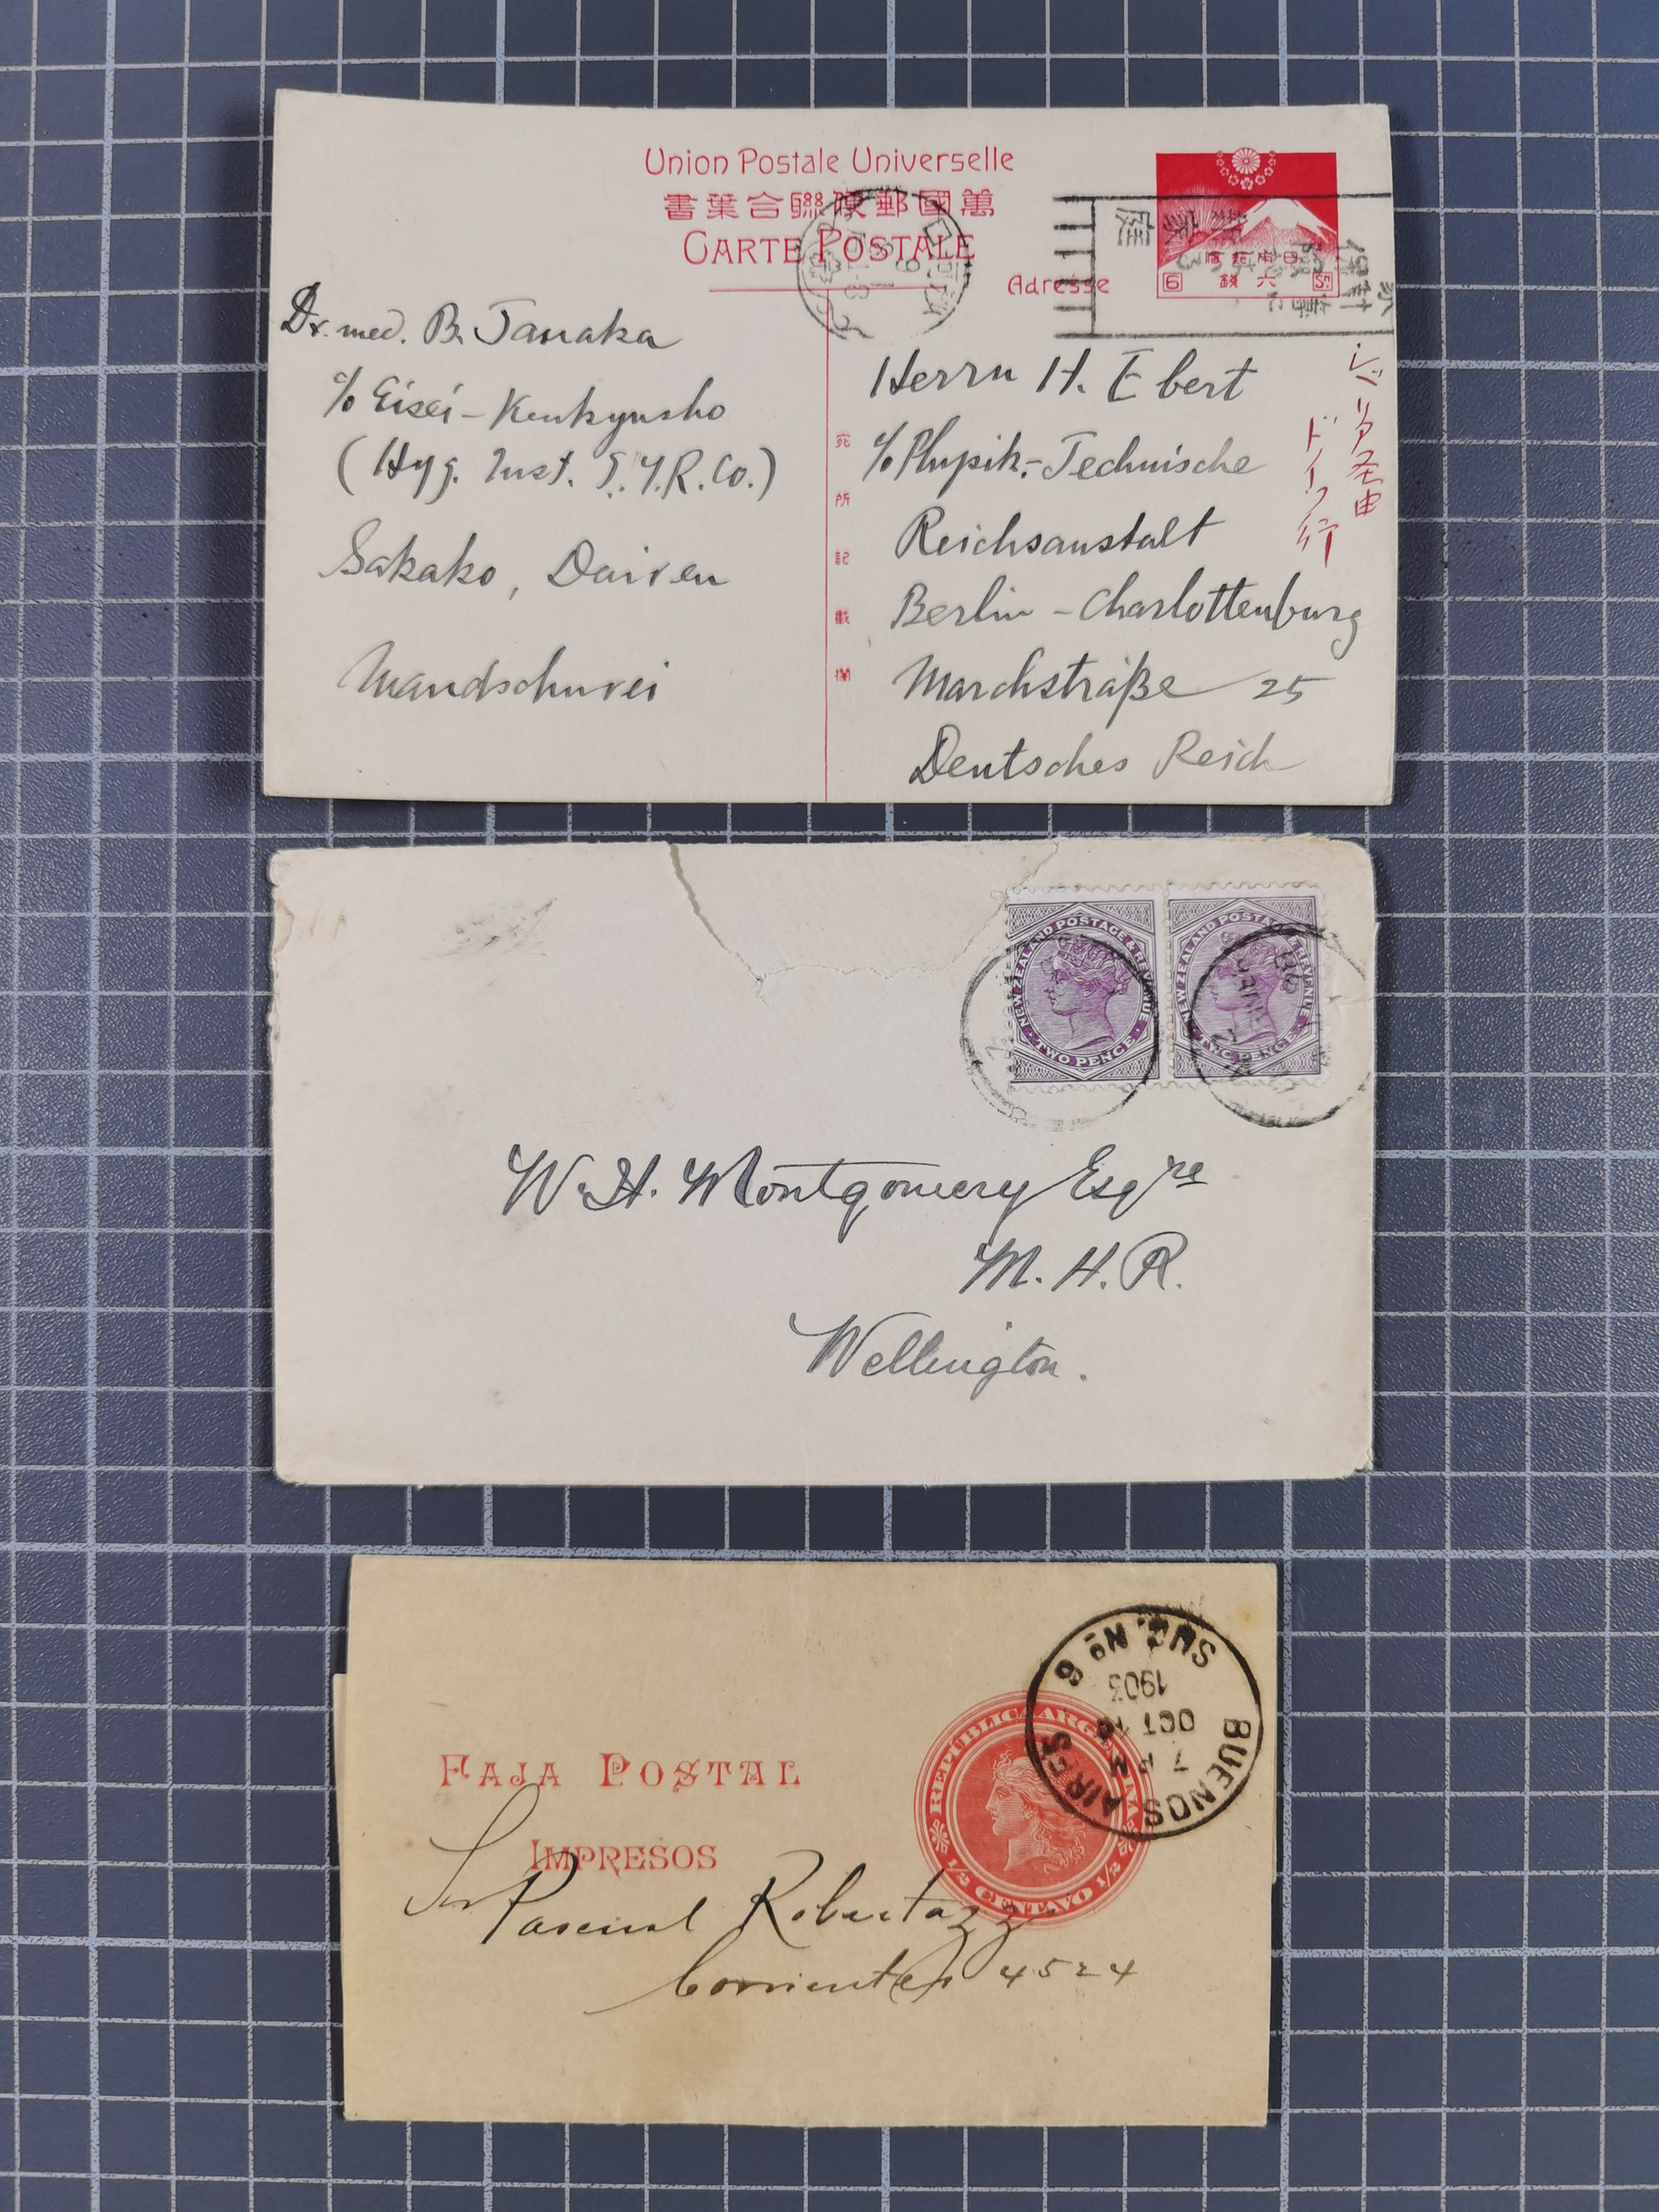 Union Postale Universelle
書葉合聯便郵國萬
CARTE POSTALE
Adresse
6
錢六
Dr. med. B. Tanaka
c/o Eisei-Kenkyusho
(Hyg. Inst. S.M.R.Co.)
Sakako, Dairen
Mandschurei
宛所記載欄
Herrn H. Ebert
c/o Physik.-Technische
Reichsanstalt
Berlin-Charlottenburg
Marchstraße 25
Deutsches Reich
シベリア経由
ドイツ行
NEW ZEALAND POSTAGE & REVENUE
TWO PENCE
NEW ZEALAND POSTAGE & REVENUE
TWO PENCE
W. H. Montgomery Esqre
M. H. R.
Wellington.
FAJA POSTAL
IMPRESOS
REPUBLICA ARGENTINA
1/2 CENTAVO 1/2
BUENOS AIRES
SUC. Nº 6
7 PM
OCT 14
1903
Sr Pascual Robertazzi
Corrientes 4524